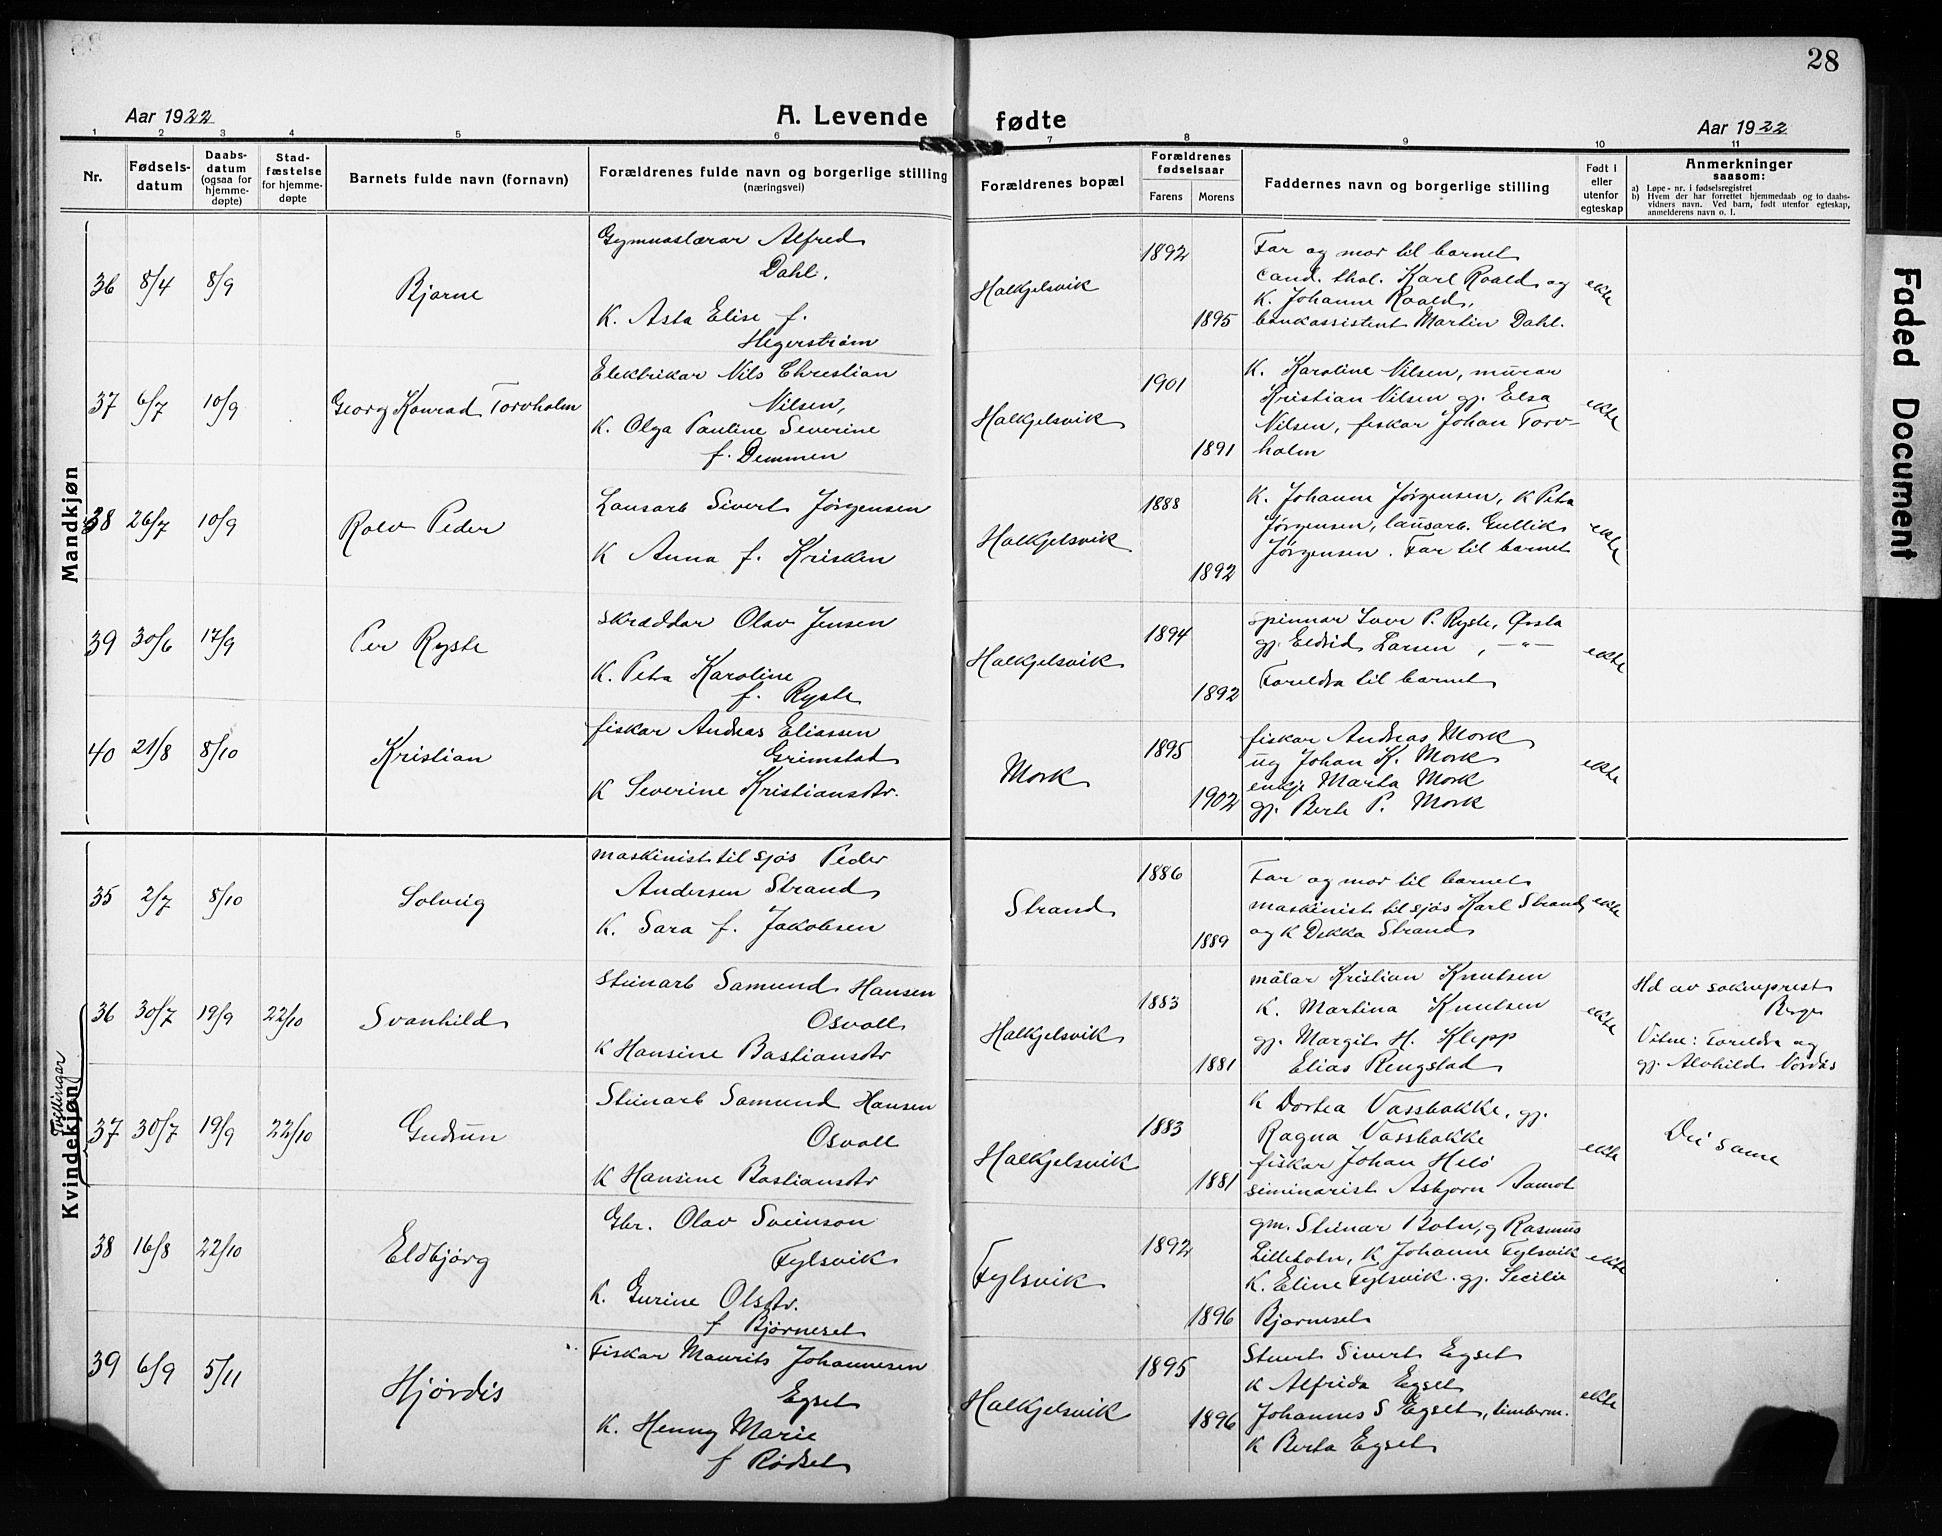 28
Aar 1922
A. Levende fødte
Aar 1922
1 2 3 4 5 6 7 8 9 10 11
Nr.
Fødsels-
datum
Daabs-
datum
(ogsaa for
hjemme-
døpte)
Stad-
fæstelse
for hjemme-
døpte
Barnets fulde navn (fornavn)
Forældrenes fulde navn og borgerlige stilling
(næringsvei)
Forældrenes bopæl
Forældrenes
fødselsaar
Farens Morens
Faddernes navn og borgerlige stilling
Født i
eller
utenfor
egteskap
Anmerkninger
saasom:
a) Løpe-nr. i fødselsregistret
b) Hvem der har forrettet hjemmedaab og to daabs-
vidners navn. Ved barn, født utenfor egteskap,
anmelderens navn o. l.
Mandkjøn
36 8/4 8/9
Bjarne
Gymnaslærar Alfred
Dahl.
K. Asta Elise f.
Hegerstrøm
Halkjelsvik
1892
1895
Far og mor til barnet
cand. thol. Karl Roald og
K. Johanne Roald,
bankassistent Martin Dahl.
ekte
37 6/7 10/9
Georg Konrad Torvholm
Elektrikar Nils Christian
Nilsen,
K. Olga Pauline Severine
f. Demmen
Halkjelsvik
1901
1891
K. Karoline Nilsen, murar
Kristian Nilsen gj. Elsa
Nilsen, fiskar Johan Torv-
holm
ekte
38 26/7 10/9
Rolv Peder
Lausarb Sivert Jørgensen
K Anna f. Kristen
Halkjelsvik
1888
1892
K. Johanne Jørgensen, K Peta
Jørgensen, lausarb. Gullik
Jørgensen. Far til barnet
ekte
39 30/6 17/9
Per Ryste
Skræddar Olav Jensen
K. Peta Karoline
f. Ryste
Halkjelsvik
1894
1892
spinnar Iver P. Ryste, Ørsta
gj. Eldrid Larsen, —"—
Foreldra til barnet
ekte
40 21/8 8/10
Kristian
fiskar Andreas Eliassen
Grimstad
K Severine Kristiansdtr.
Mork
1895
1902
fiskar Andreas Mork
ug Johan K. Mork
enkje Marta Mork
gj. Berte P. Mork
ekte
Kvindekjøn
35 2/7 8/10
Solveig
maskinist til sjøs Peder
Andersen Strand
K. Sara f. Jakobsen
Strand
1886
1889
Far og mor til barnet
maskinist til sjøs Karl Strand
og K Dekka Strand
ekte
Tvillingar
36 30/7 19/9 22/10
Svanhild
Steinarb Samund Hansen
Osvoll
K Hansine Bastiansdtr
Halkjelsvik
1883
1881
målar Kristian Knutsen
K. Martina Knutsen
gj. Margit H. Klepp
Elias Rengstad
ekte
Hd av sokneprest
Berge
Vitne: Foreldra og
gj. Alvhild Nordås
37 30/7 19/9 22/10
Gudrun
Steinarb Samund Hansen
Osvoll
K Hansine Bastiansdtr
Halkjelsvik
1883
1881
K Dortea Vassbakke, gj.
Ragna Vassbakke
fiskar Johan Helø
seminarist Asbjørn Aamot
ekte
Dei same
38 16/8 22/10
Eldbjørg
Gbr. Olav Sveinson
Fylsvik
K. Gurine Olsdtr.
f Bjørneset
Fylsvik
1892
1896
gm. Steinar Botn, g Rasmus
Lillebotn, K Johanne Fylsvik
K. Eline Fylsvik. gj. Secilie
Bjørneset
ekte
39 6/9 5/11
Hjørdis
Fiskar Maurits Johannesen
Egset
K. Henny Marie
f Rødset
Halkjelsvik
1895
1896
Stuert Sivert Egset
K Alfrida Egset
Johannes S Egset, timberm.
K Berta Egset
ekte
Faded Document